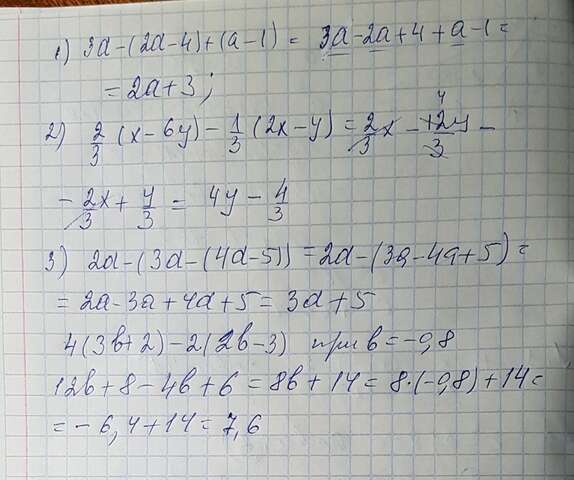 1) 3a-(2a-4)+(a-1) = 3a-2a+4+a-1=
= 2a+3;
2) 2/3 (x-6y) - 1/3 (2x-y) = 2/3 x - 12y/3 -
- 2/3 x + y/3 = 4y - 4/3
3) 2a-(3a-(4a-5)) = 2a-(3a-4a+5) =
= 2a-3a+4a+5 = 3a+5
4(3b+2)-2(2b-3) при b=-0,8
12b+8-4b+6 = 8b+14 = 8·(-0,8)+14=
= -6,4+14 = 7,6